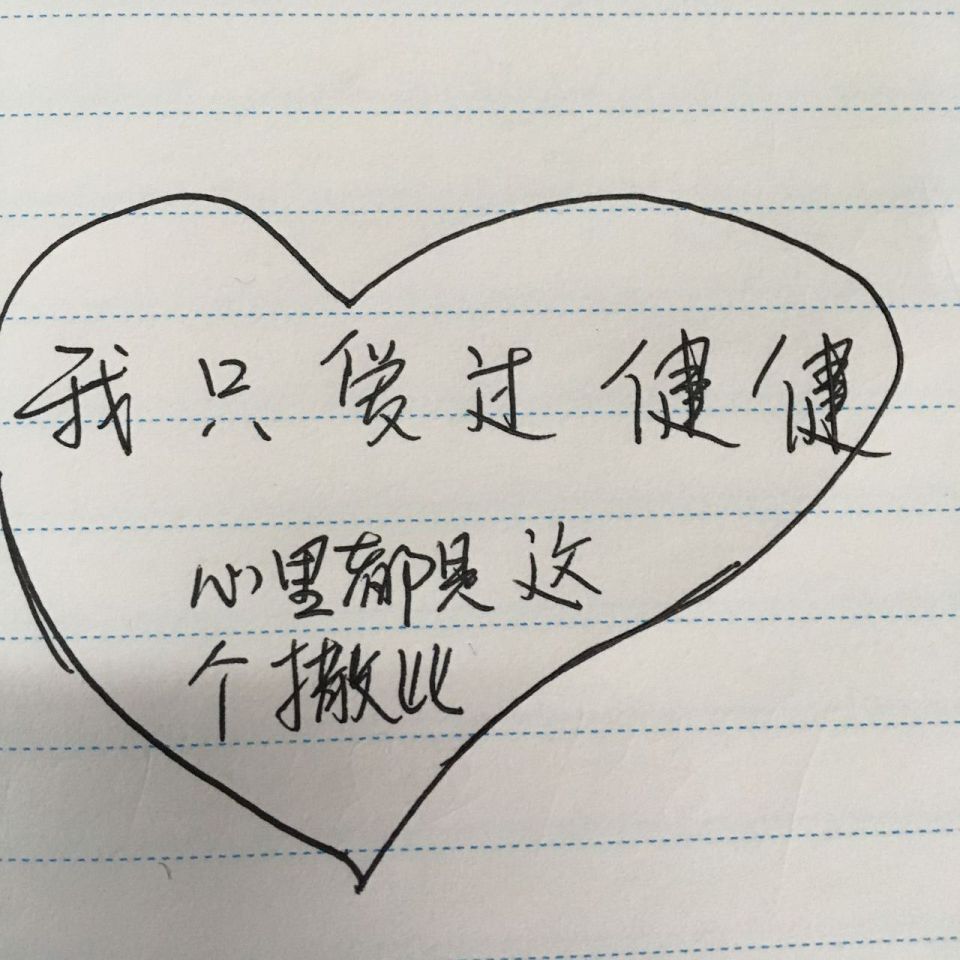 我只爱过健健
心里都是这
个撒比